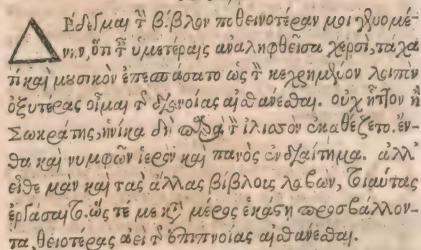 Δέδεγμαι τὴν βίβλον ποθεινοτέραν μοι γενομέ-
νην, ὅτι ταῖς ὑμετέραις ἀναληφθεῖσα χερσί, τάχα
τι καὶ μουσικὸν ἐπεσπάσατο ὡς τὸν κεχρημένον λοιπὸν
ὀξυτέρας οἶμαι τῆς διανοίας αἰσθάνεσθαι. οὐχ ἧττον ἢ
Σωκράτης, ἡνίκα δὴ παρὰ τὸν ἰλισσὸν ἐκαθέζετο. ἔν-
θα καὶ νυμφῶν ἱερὸν καὶ πανὸς ἐνδιαίτημα. ἀλλ'
εἴθε μαν καὶ τὰς ἄλλας βίβλους λαβὼν, τοιαύτας
ἐργάσαιτο. ὥς τέ με κατὰ μέρος ἑκάστη προσβάλλον-
τα, θειοτέρας ἀεὶ τῆς ἐπιπνοίας αἰσθάνεσθαι.